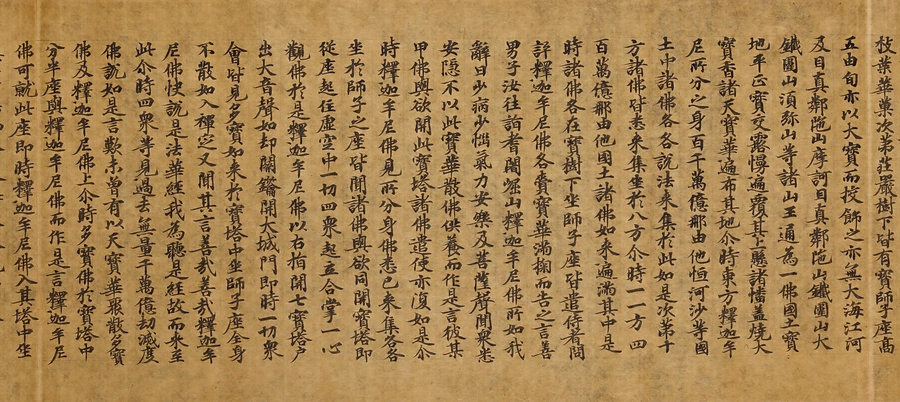 枝葉華菓次第莊嚴樹下皆有寶師子座高
五由旬亦以大寶而挍飾之亦無大海江河
及目真鄰陁山摩訶目真鄰陁山鐵圍山大
鐵圍山湏弥山等諸山王通為一佛國土寶
地平正寶交露慢遍覆其上縣諸幡盖燒大
寶香諸天寶華遍布其地尒時東方釋迦牟
尼所分之身百千萬億那由他恒河沙等國
土中諸佛各各說法来集於此如是次第十
方諸佛皆悉来集坐於八方尒時一一方四
百萬億那由他國土諸佛如来遍滿其中是
時諸佛各在寶樹下坐師子座皆遣侍者問
訊釋迦牟尼佛各賷寶華滿掬而告之言善
男子汝往詣耆闍崛山釋迦牟尼佛所如我
辭曰少病少惱氣力安樂及菩薩聲聞衆悉
安隱不以此寶華散佛供養而作是言彼某
甲佛與欲開此寶塔諸佛遣使亦復如是尒
時釋迦牟尼佛見所分身佛悉已来集各各
坐於師子之座皆聞諸佛與欲同開寶塔即
從座起住虛空中一切四衆起立合掌一心
觀佛於是釋迦牟尼佛以右指開七寶塔户
出大音聲如却關鑰開大城門即時一切衆
會皆見多寶如来於寶塔中坐師子座全身
不散如入禪定又聞其言善哉善哉釋迦牟
尼佛快說是法華經我為聽是經故而来至
此尒時四衆等見過去無量千萬億劫滅度
佛說如是言歎未曾有以天寶華聚散多寶
佛及釋迦牟尼佛上尒時多寶佛於寶塔中
分半座與釋迦牟尼佛而作是言釋迦牟尼
佛可就此座即時釋迦牟尼佛入其塔中坐